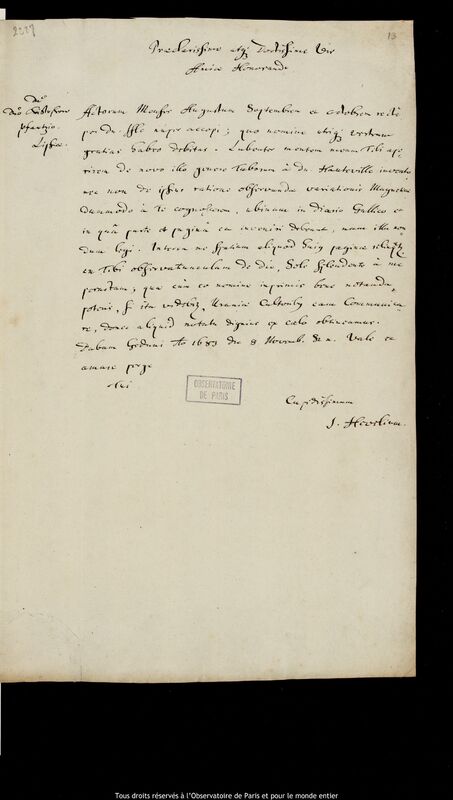 2227
13
Praeclarissime atq; Doctissime Vir
Amice Honorande
Dno Christophoro
Pfautzio.
Lipsiae.
Actorum Menses Augustum Septembrem et Octobrem rectè
per Dn. nuper accepi; quo nomine utiq; vestrum
gratias habeo debitas. Lubenter mentem meam Tibi ape-
rirem de novo illo genere Tuborum à Dn. Hauteville invento
nec non de ipsius ratione observandae variationis Magneticae
dummodò à Te cognoscerem, ubinam in diario Gallico et
in quâ parte et paginâ ea inveniri debeant, nam illa non
dum legi. Interea ne spatium aliquod hujus paginae
en Tibi observatiunculam de die, Sole splendente à me
peractam; quae cum eo nomine inprimis bene notanda,
poteris, si ita videbitur, Uraniae Cultoribus eam communica-
re, donec aliquid notatu dignius ex caelo obtineamus.
Dabam Gedani Ao 1683 die 8 Novemb. st. n. Vale et
amare perge
Tui
OBSERVATOIRE
DE PARIS
Cupidissimum
J. Hevelium.
Tous droits réservés à l'Observatoire de Paris et pour le monde entier